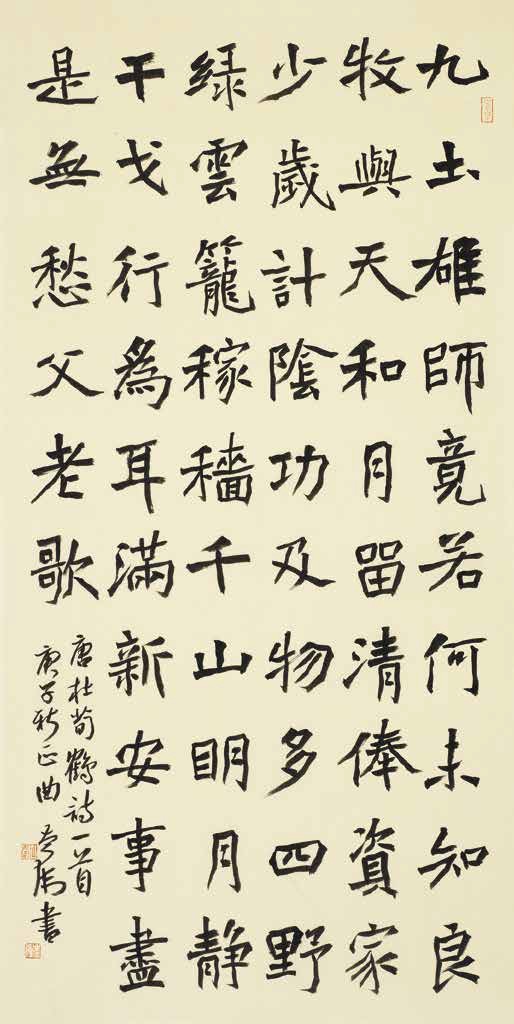 九土雄師竟若何未知良
牧與天和月留清俸資家
少歲計陰功及物多四野
緑雲籠稼穡千山明月靜
干戈行為耳滿新安事盡
是無愁父老歌
唐杜荀鶴詩一首
庚子新正曲書